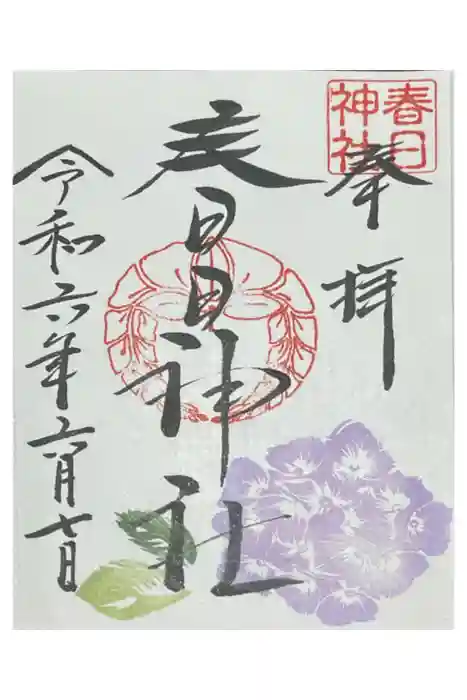 春日
神社
奉拝
春日神社
令和六年六月七日